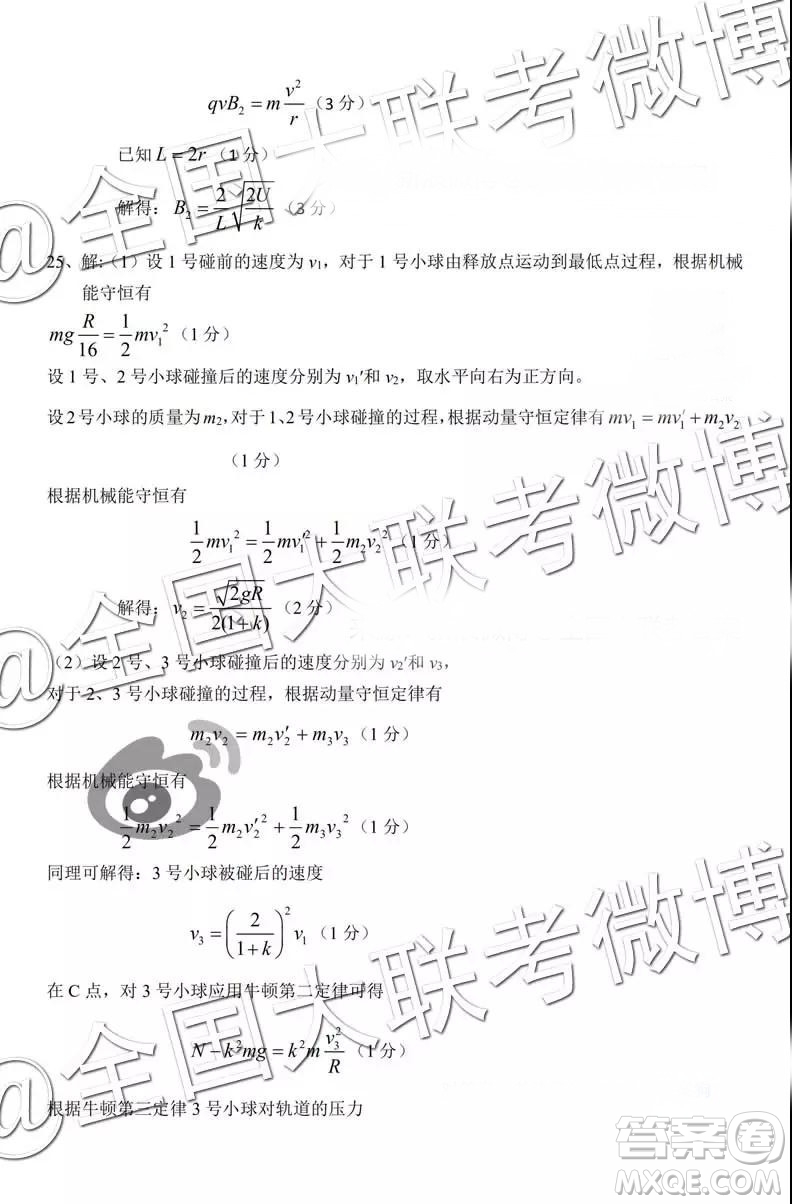 qvB₂ = m v²/r（3 分）
已知 L = 2r（1 分）
解得： B₂ = (2/L)√(2U/k) （3 分）
25、解:（1）设 1 号碰前的速度为 v₁，对于 1 号小球由释放点运动到最低点过程，根据机械
能守恒有
mg R/16 = 1/2 mv₁²（1 分）
设 1 号、2 号小球碰撞后的速度分别为 v₁′和 v₂，取水平向右为正方向。
设 2 号小球的质量为 m₂，对于 1、2 号小球碰撞的过程，根据动量守恒定律有 mv₁ = mv₁′ + m₂v₂
（1 分）
根据机械能守恒有
1/2 mv₁² = 1/2 mv₁′² + 1/2 m₂v₂²（1 分）
解得： v₂ = √(2gR)/(2(1+k))（2 分）
（2）设 2 号、3 号小球碰撞后的速度分别为 v₂′和 v₃，
对于 2、3 号小球碰撞的过程，根据动量守恒定律有
m₂v₂ = m₂v₂′ + m₃v₃（1 分）
根据机械能守恒有
1/2 m₂v₂² = 1/2 m₂v₂′² + 1/2 m₃v₃²（1 分）
同理可解得：3 号小球被碰后的速度
v₃ = (2/(1+k))² v₁（1 分）
在 C 点，对 3 号小球应用牛顿第二定律可得
N − k²mg = k²m v₃²/R（1 分）
根据牛顿第三定律 3 号小球对轨道的压力
@全国大联考微博
@全国大联考微博
@全国大联考微博
答案卷
MXQE.COM